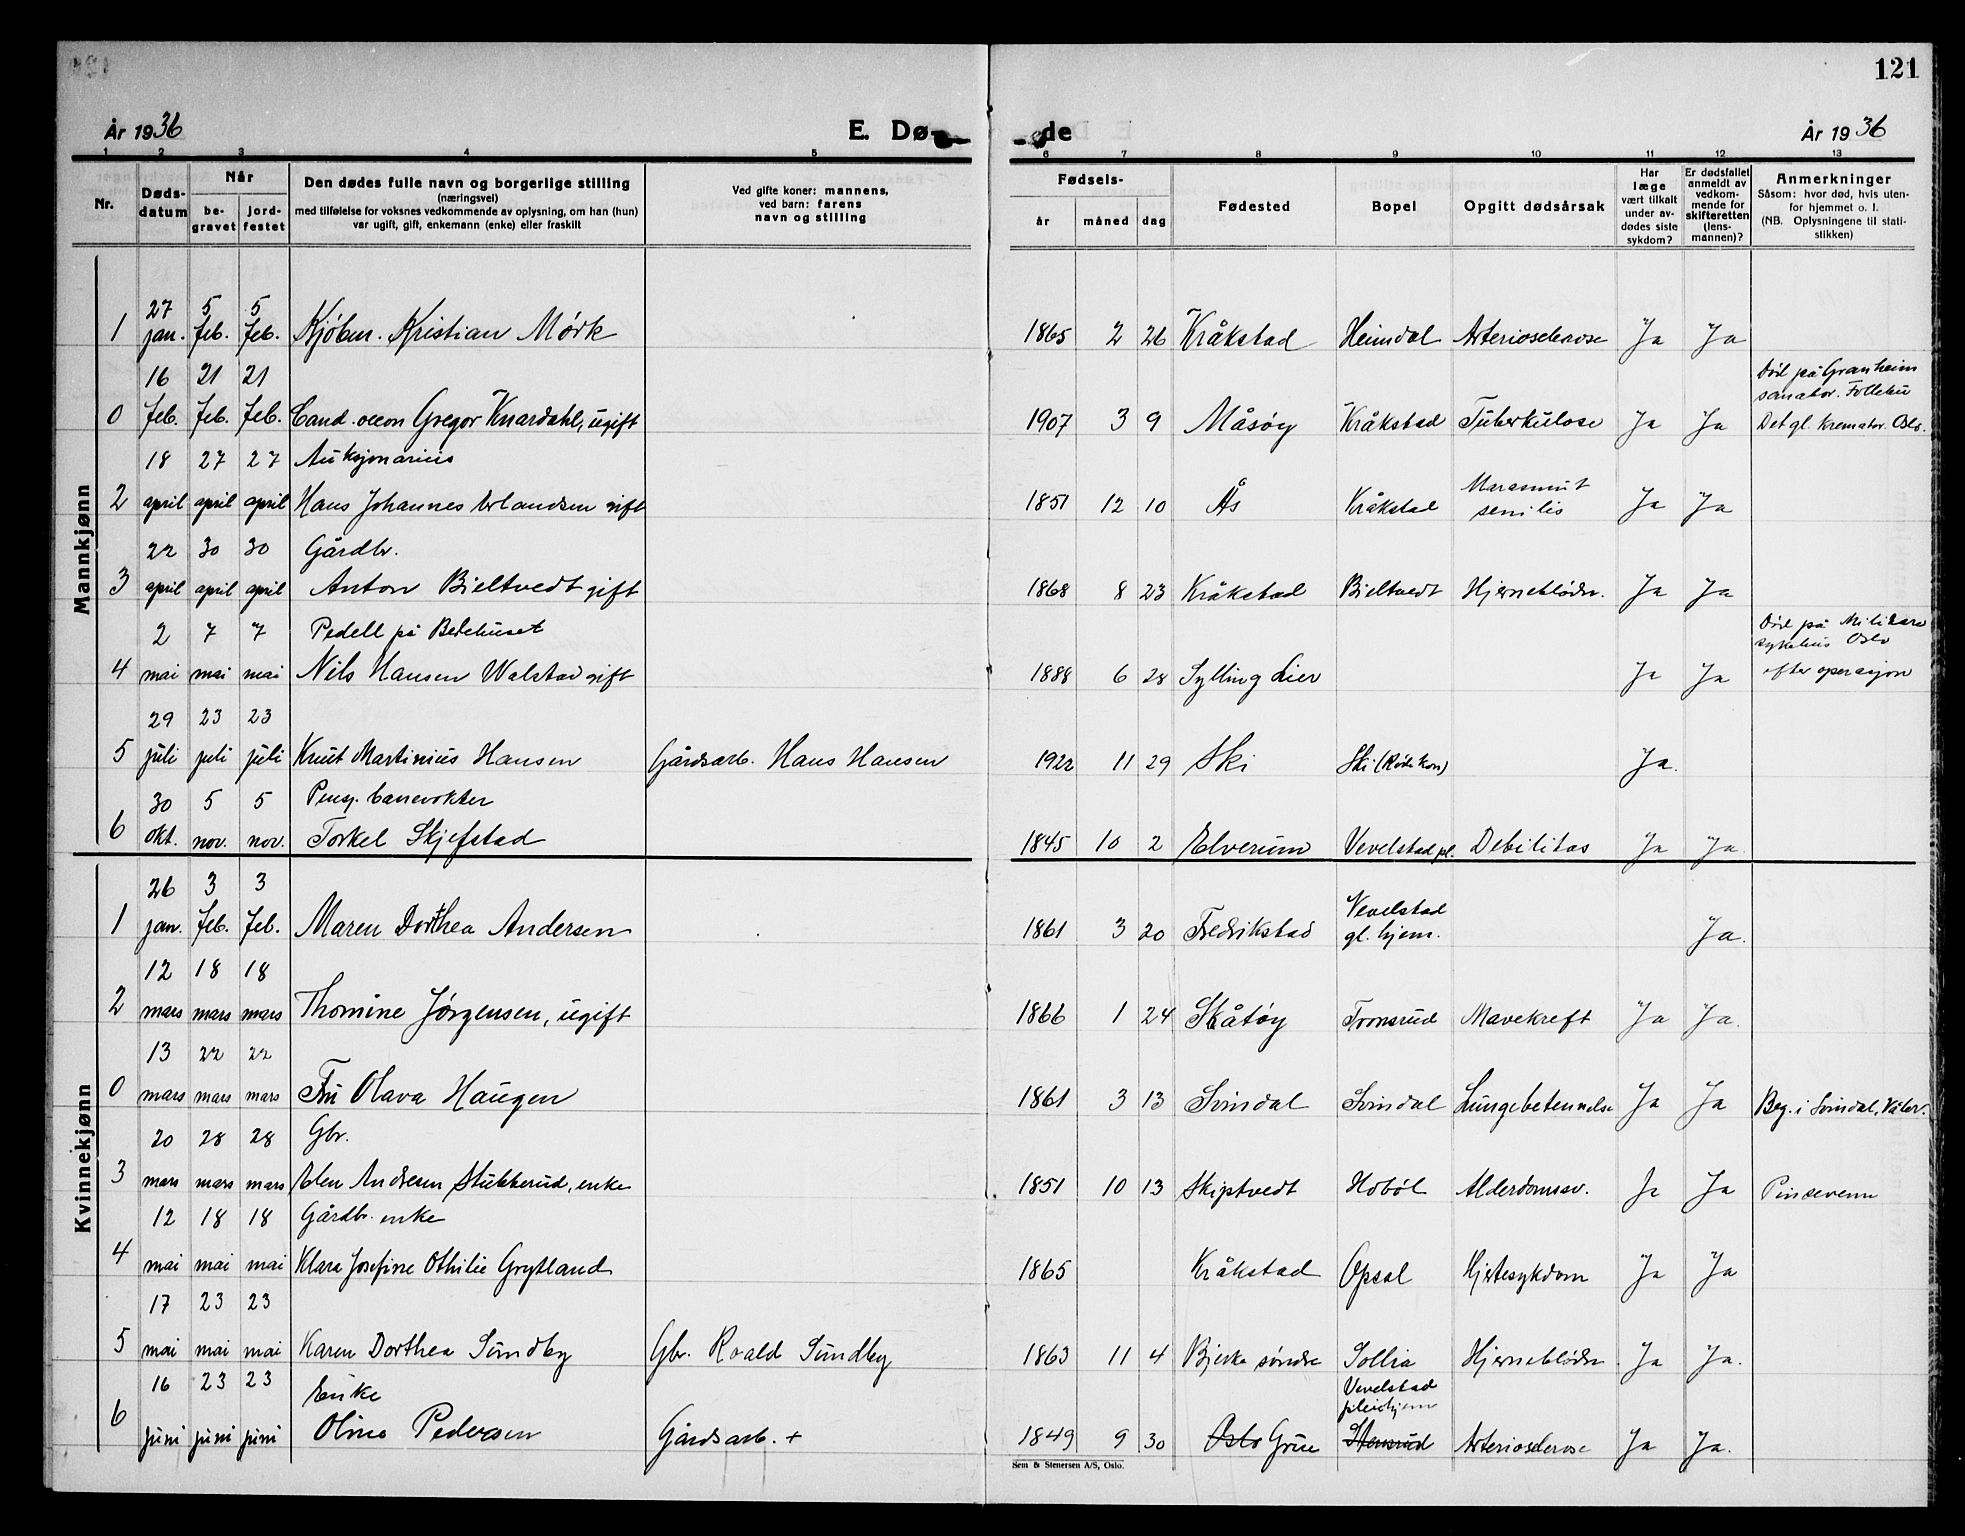 121
År 1936 E. Dø- de År 1936
1 2 3 4 5 6 7 8 9 10 11 12 13
Nr.
Døds-
datum
Når
be-
gravet
jord-
festet
Den dødes fulle navn og borgerlige stilling
(næringsvei)
med tilføielse for voksnes vedkommende av oplysning, om han (hun)
var ugift, gift, enkemann (enke) eller fraskilt
Ved gifte koner: mannens,
ved barn: farens
navn og stilling
Fødsels-
år måned dag
Fødested
Bopel
Opgitt dødsårsak
Har
læge
vært tilkalt
under av-
dødes siste
sykdom?
Er dødsfallet
anmeldt av
vedkom-
mende for
skifteretten
(lens-
mannen)?
Anmerkninger
Såsom: hvor død, hvis uten-
for hjemmet o. l.
(NB. Oplysningene til stati-
stikken)
Mannkjønn
27 5 5
1 jan. feb. feb. Kjøbm. Kristian Mørk 1865 2 26 Kråkstad Heimdal Arteriosclerose Ja Ja
16 21 21 Død på Granheim
sanator. Follebu
0 feb. feb. feb. Cand. oecon Gregor Knardahl, ugift 1907 3 9 Måsøy Kråkstad Tuberkulose Ja Ja Det gl. kremator. Oslo.
18 27 27 Auksjonarius
2 april april april Hans Johannes Erlandsen gift 1851 12 10 Ås Kråkstad Marasmut
senilis Ja Ja
22 30 30 Gårdbr.
3 april april april Anton Bjeltvedt gift 1868 8 23 Kråkstad Bjeltvedt Hjerneblødn. Ja Ja
2 7 7 Pedell på Bedehuset Død på Militære
sykehus Oslo
4 mai mai mai Nils Hansen Walstad gift 1888 6 28 Sylling Lier Ja Ja efter operasjon
29 23 23
5 juli juli juli Knut Martinius Hansen Gårdsarb. Hans Hansen 1922 11 29 Ski Ski Ja.
30 5 5 Pensj. banevokter
6 okt. nov. nov. Torkel Skjefstad 1845 10 2 Elverum Vevelstad pl. Debilitas Ja Ja.
Kvinnekjønn
26 3 3
1 jan. feb. feb. Maren Dorthea Andersen 1861 3 20 Fredrikstad Vevelstad
gl. hjem. Ja.
12 18 18
2 mars mars mars Thomine Jørgensen, ugift 1866 1 24 Skåtøy Tronsrud Mavekreft Ja Ja.
13 22 22
0 mars mars mars Fru Olava Haugen 1861 3 13 Svindal Svindal Lungebetennelse Ja Ja Beg. i Svindal, Våler.
20 28 28 Gbr.
3 mars mars mars Elen Andresen Stubberud, enke 1851 10 13 Skiptvedt Hobøl Alderdomssv. Ja Ja Pinsevenn
12 18 18 Gårdbr. enke
4 mai mai mai Klara Josefine Othilie Grytland 1865 Kråkstad Opsal Hjertesykdom Ja Ja
17 23 23
5 mai mai mai Karen Dorthea Sundby Gbr. Roald Sundby 1863 11 4 Bjerke søndre Sollia Hjerneblødn. Ja Ja.
16 23 23 Enke Vevelstad
pleiehjem
6 juni juni juni Oline Pedersen Gårdsarb. + 1849 9 30 Oslo Grue Stensrud Arteriosclerose Ja Ja.
Sem & Stenersen A/S, Oslo.